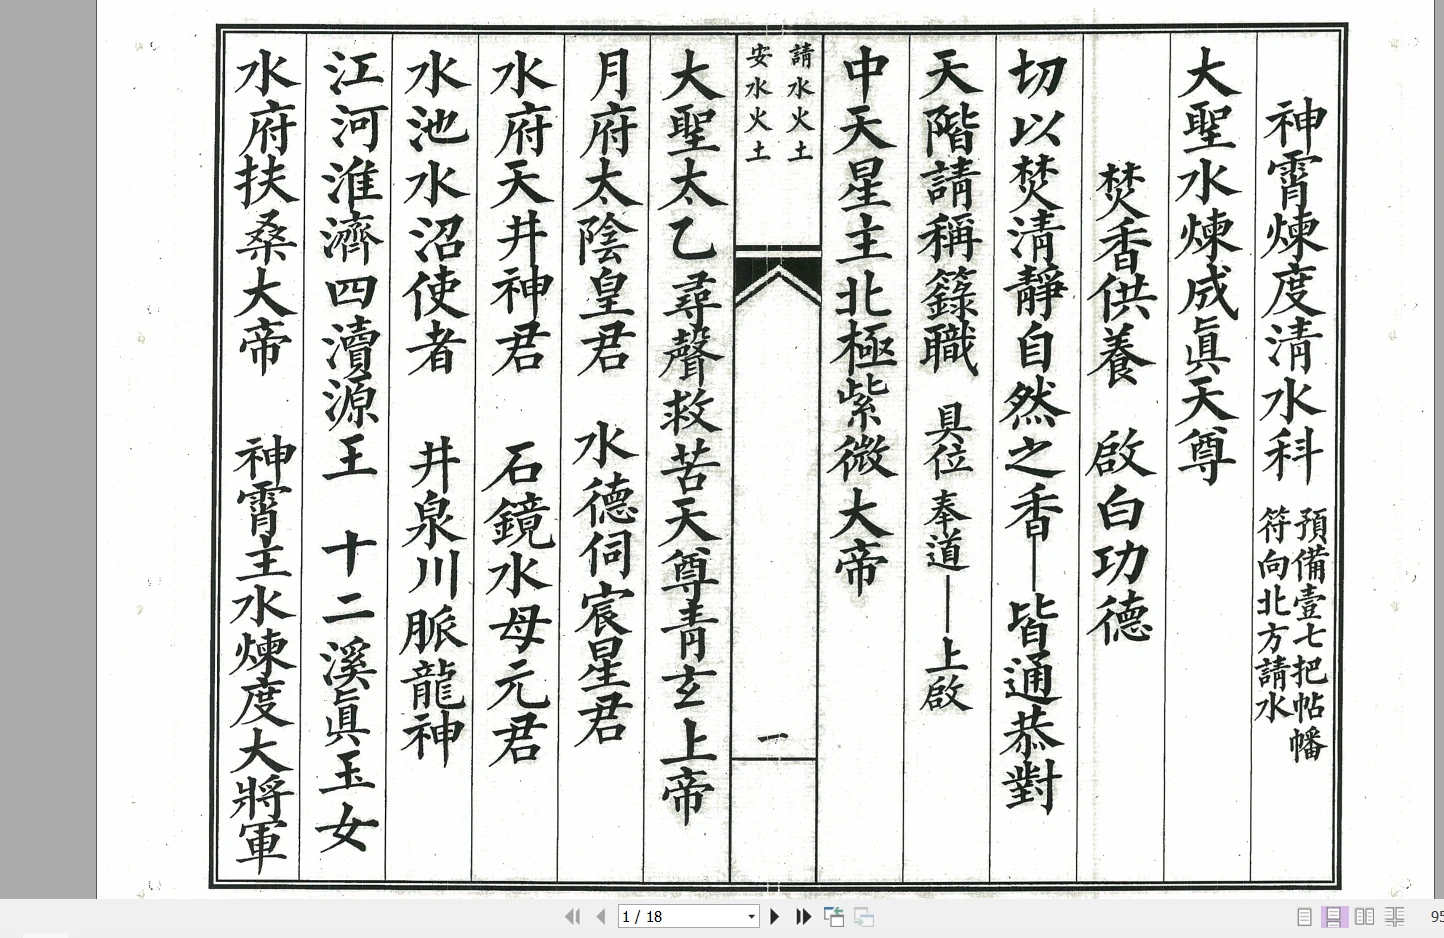 神霄煉度清水科 預備壹七把帖幡符向北方請水
大聖水煉成眞天尊
焚香供養 啟白功德
切以焚淸清靜自然之香—皆通恭對
天階請稱籙職 具位 奉道—上啟
中天星主北極紫微大帝
請水火土
安水火土
一
大聖太乙尋聲救苦天尊靑玄上帝
月府太陰皇君 水德伺宸星君
水府天井神君 石鏡水母元君
水池水沼使者 井泉川脈龍神
江河淮濟四瀆源王 十二溪眞玉女
水府扶桑大帝 神霄主水煉度大將軍
1 / 18
95